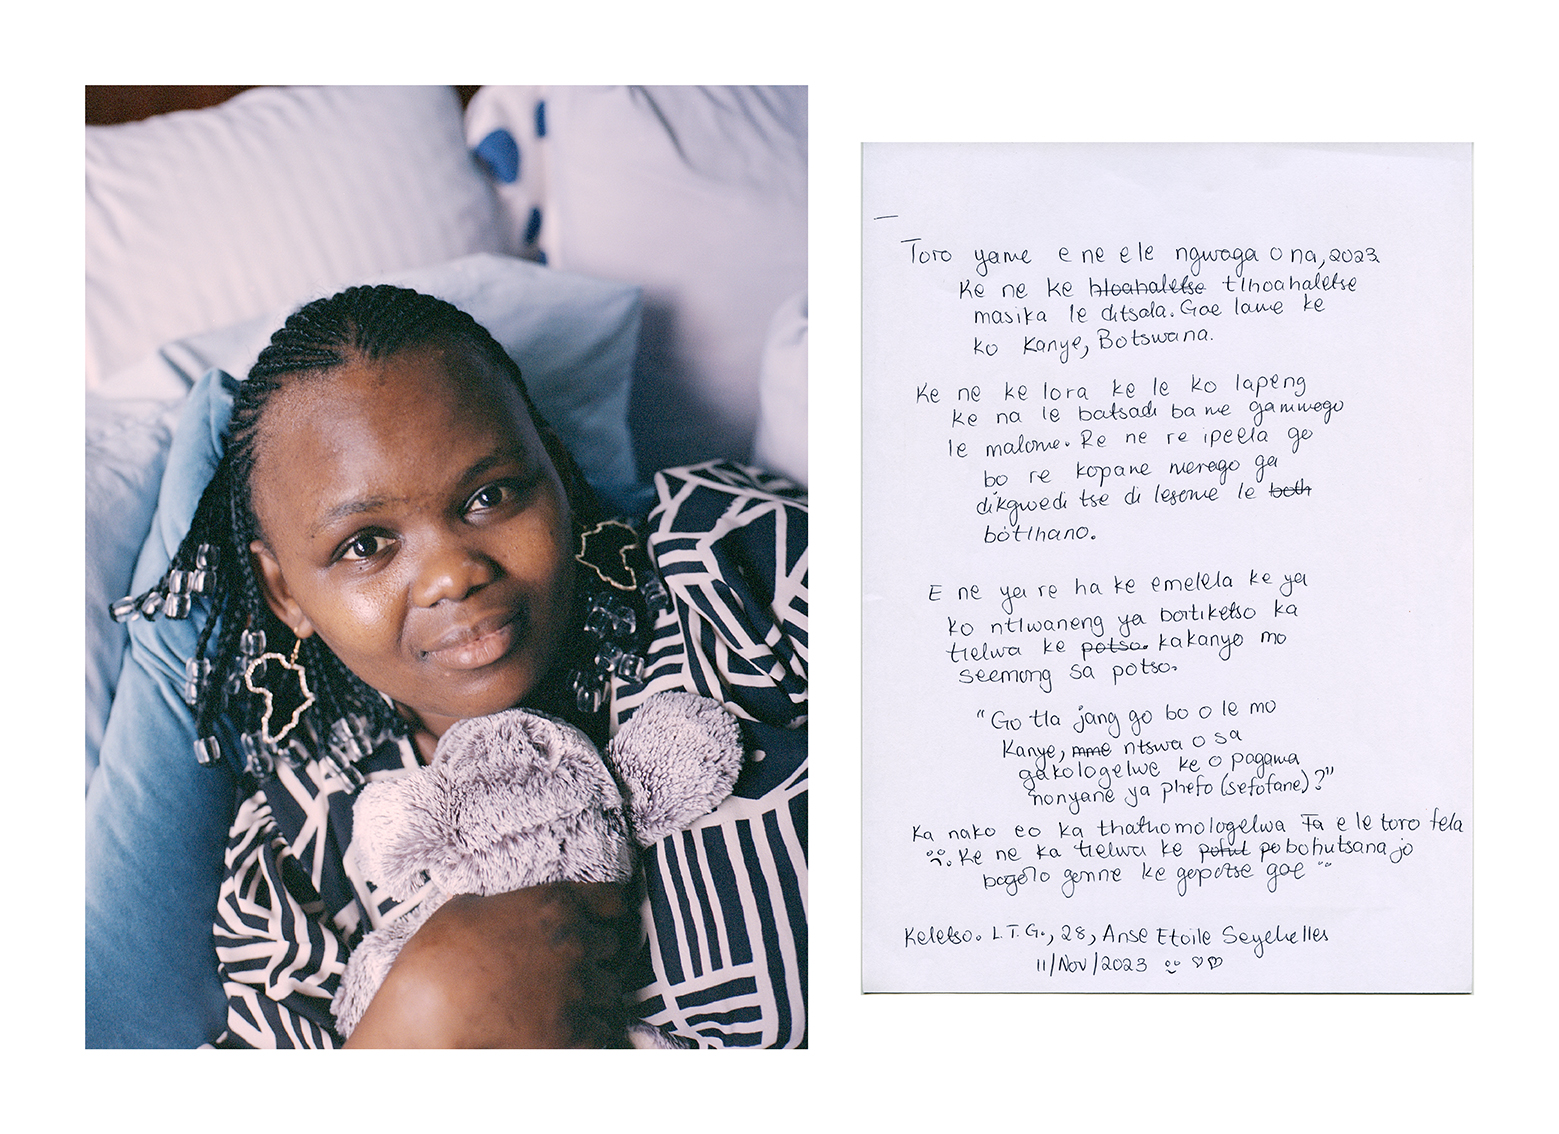 Toro yame e ne ele ngwaga o na, 2023
Ke ne ke hloahaletse tlhoahaletse
masika le ditsala. Gae lame ke
ko Kanye, Botswana.
Ke ne ke lora ke le ko lapeng
ke na le batsadi ba me gammogo
le malome. Re ne re ipeela go
bo re kopane merago ga
dikgwedi tse di lesome le both
botlhano.
E ne ya re ha ke emelela ke ya
ko ntlwaneng ya boitiketso ka
tielwa ke potso. kakanyo mo
seemong sa potso.
"Go tla jang go bo o le mo
Kanye, mme ntswa o sa
gakologelwe ke o pagama
nonyane ya phefo (sefofane)?"
Ka nako eo ka thathomologelwa Fa e le toro fela
Ke ne ka tielwa ke bohutsana jo
bogolo gonne ke gopotse gae
Keletso. L.T.G., 28, Anse Etoile Seychelles
11/Nov/2023